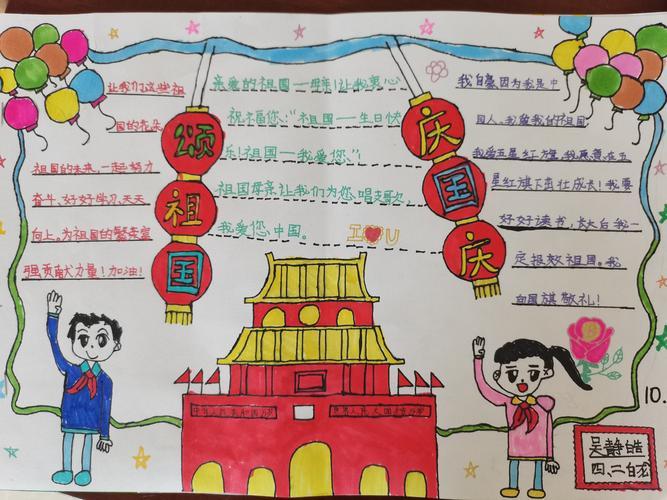 让我们这些祖
国的花朵
祖国的未来,一起努力
奋斗、好好学习、天天
向上。为祖国的繁荣富
强贡献力量!加油!
颂祖国
亲爱的祖国一母亲!让我衷心
祝福您:“祖国一生日快
乐!祖国一我爱您、”!
祖国母亲让我们为您、唱支歌、
我爱您、中国。
I❤U
庆国庆
我自豪因为我是中
国人、我爱我的祖国
我爱五星红旗,我愿意在五
星红旗下茁壮成长!我要
好好读书,长大后我一
定报效祖国。我
向国旗敬礼!
中华人民共和国万岁
世界人民大团结万岁
10.
吴静皓
四、二